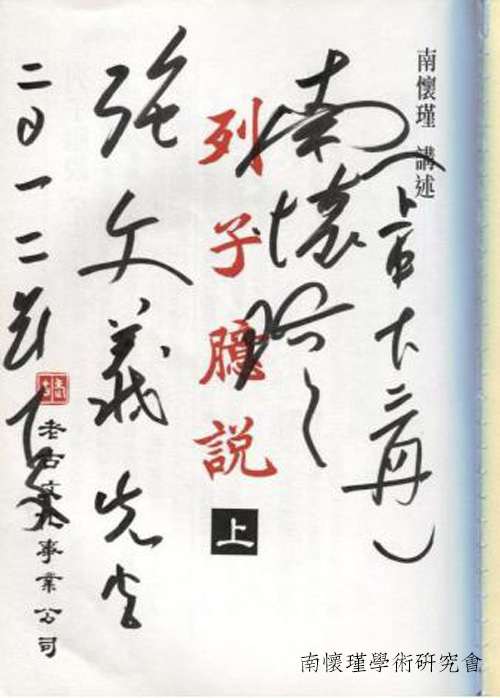 南懷瑾 講述
南懷瑾
列子臆說 上
張文義先生
二〇一二
老古文化事業公司
南懷瑾學術研究會